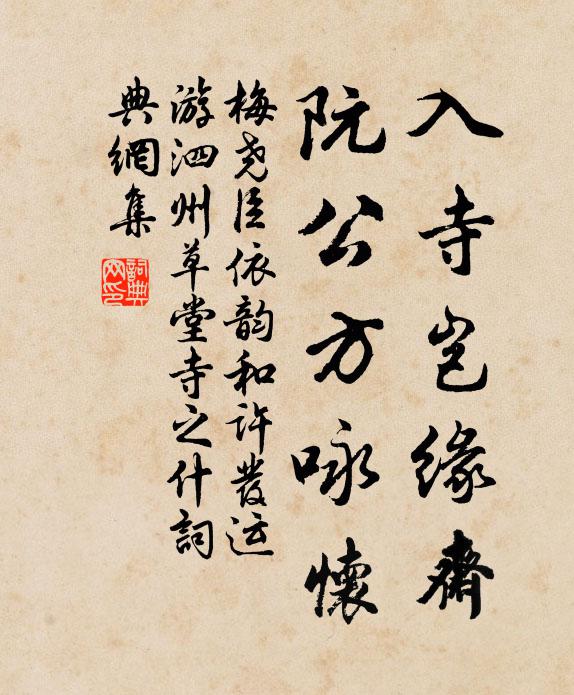 入寺岂缘齋
阮公方咏懷
梅尧臣依韵和许發运
游泗州草堂寺之什詞
典網集
詞典网印